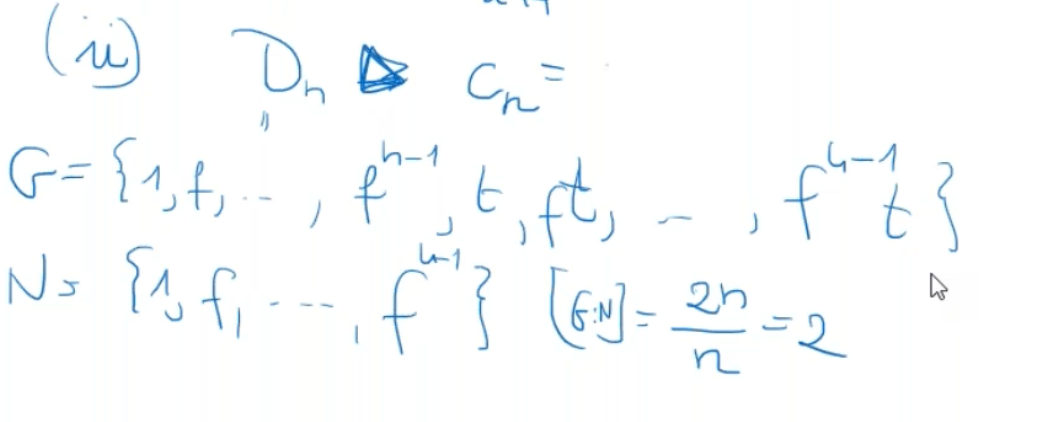 (ii) Dₙ ▷ Cₙ =
"
G = {1, f, ..., fⁿ⁻¹, t, ft, ..., fⁿ⁻¹t}
N = {1, f, ..., fⁿ⁻¹} [G:N] = 2n/n = 2